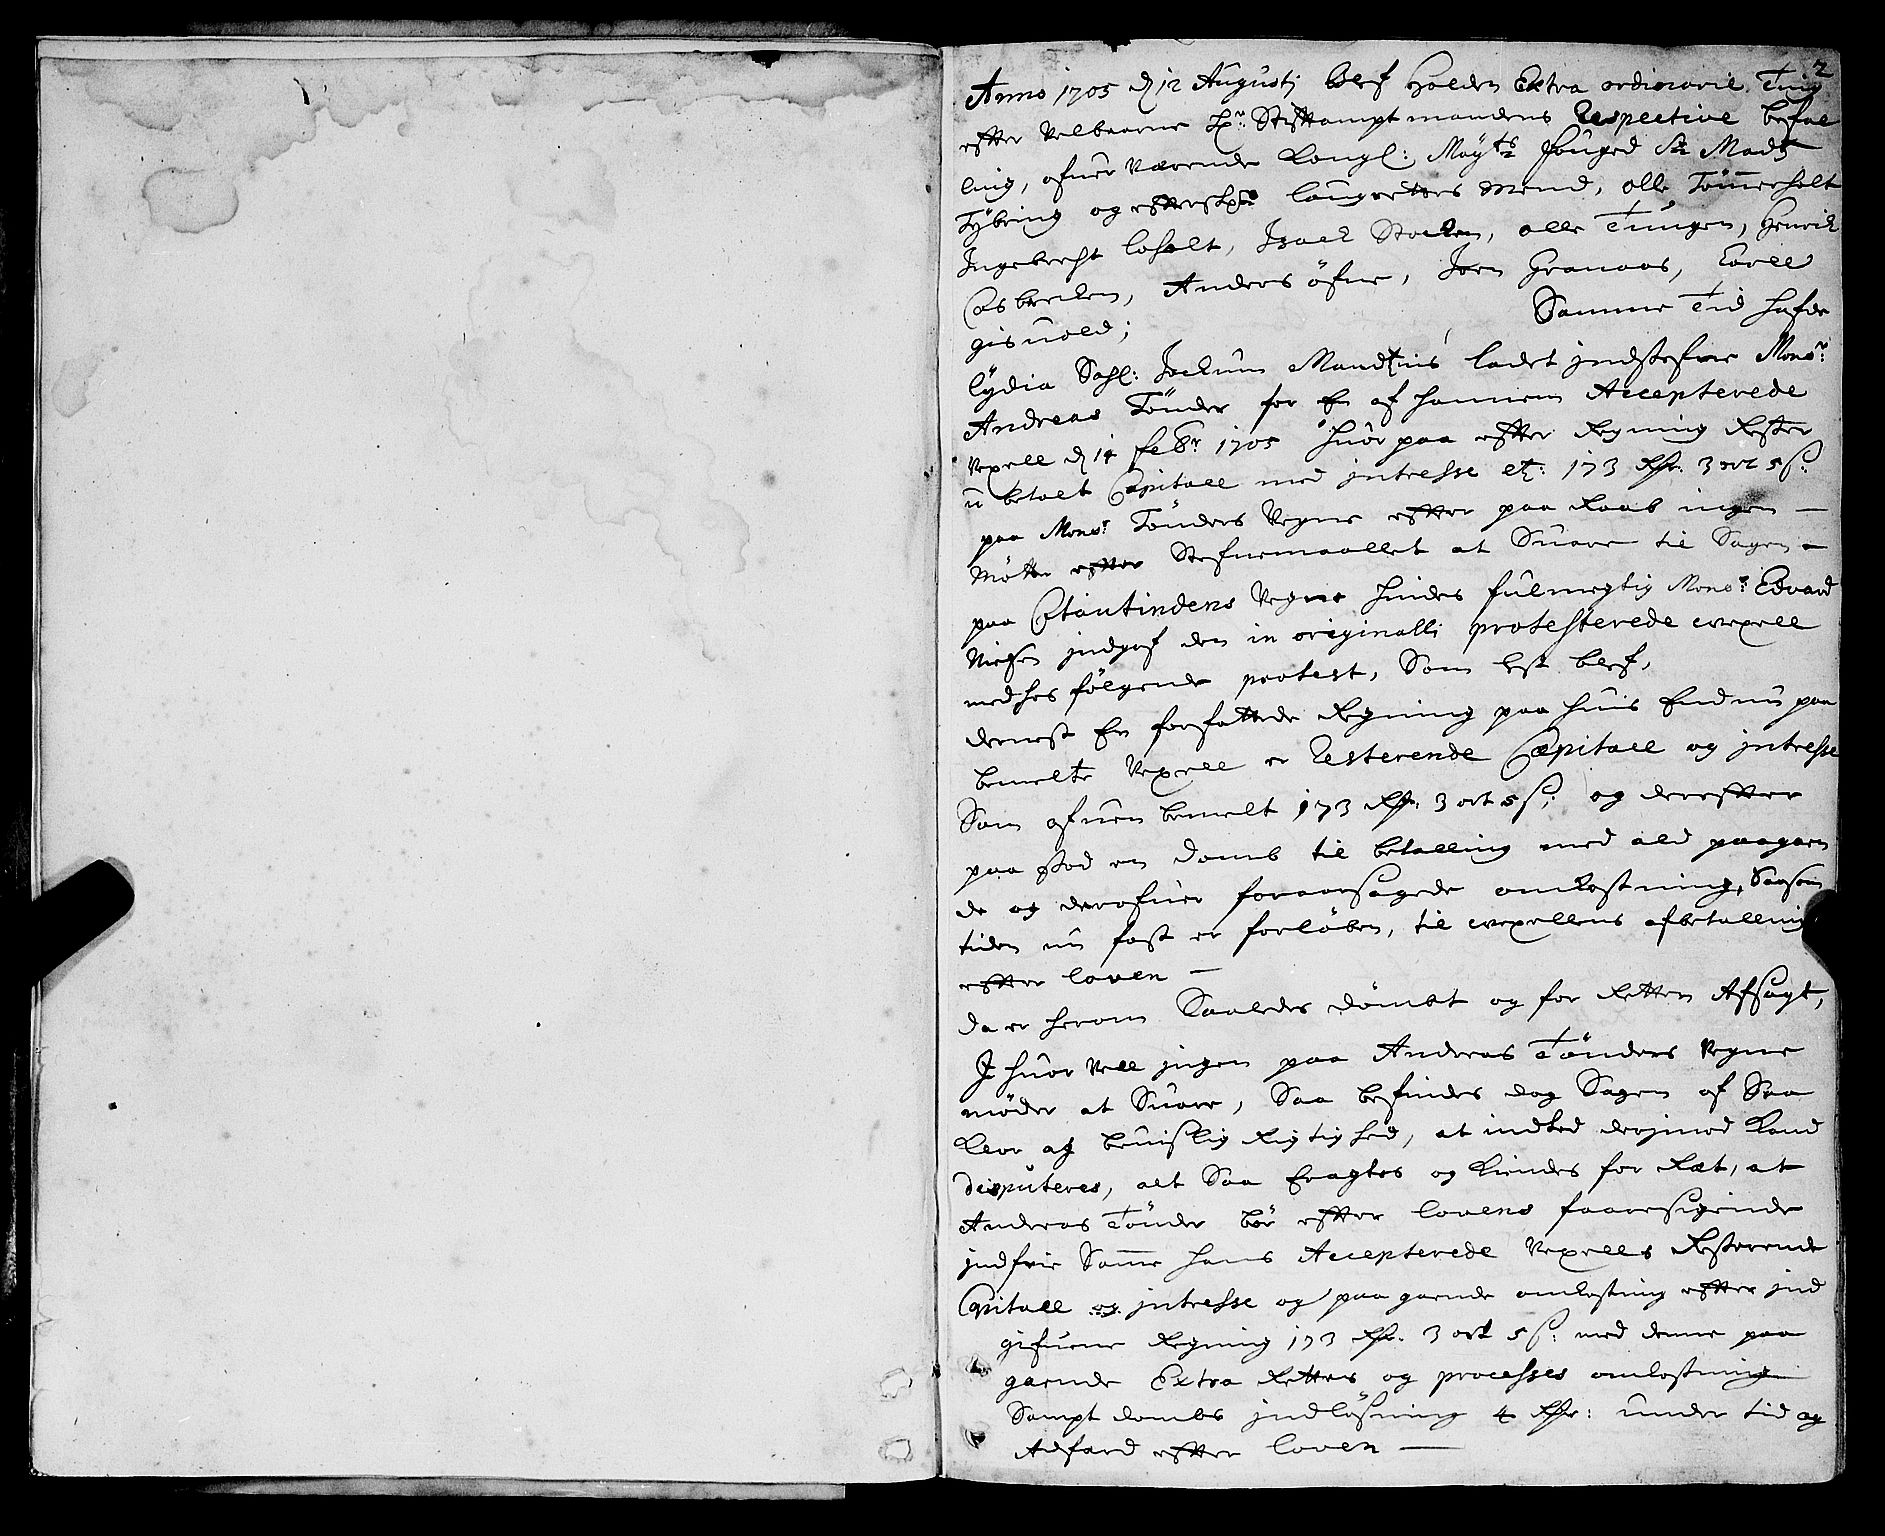 2
Anno 1705 d 12 Augustj blef holden Extra ordinarie Ting
efter Velbaarne Hr: Stiftamptmandens Respective befal
ling, ofuerværende Kongl: Mayts fouged Sr Madtz
Tybring og efterschr: laugrettes mend, olle Tømerholt
Ingebrecht loholt, Isack Stocken, olle Tungen, Henrik
Asbercken, Anders øfne, Jorn Granaas, Torell
gisuold;
Samme Tid hafde
lydia Sahl: Jockum Mandtzius ladet jndstefne Monsr:
Andreas Tønder for En af hannem Accepterede
Vexell d 14 febr: 1705 huor paa efter Regning Rester
u betalt Capitall med jntresse etc: 173 Rdr: 3 ort 5 s:
paa Monsr: Tønders Vegne efter paa Raab ingen –
Møtte efter Stefnemaallet at Suare til Sagen –
paa Citantindens Vegne hindes fulmegtig Monsr: Edvard
Nielsen jndgaf den in originalli protesterede wexell
medhos følgende protest, Som lest blef,
dernest En forfattede Regning paa huis End nu paa
bemelte Vexell er Resterende Capitall og jntresse
Som ofuen bemelt 173 Rdr: 3 ort 5 s: og derefter
paa stod en Domb til betalling med ald paagaaen
de og derofuer foraarsagede omkostning, Saasom
tiden nu fast er forløben, til wexellens afbetalling
efter loven –
da er herom Saaledes dømbt og for Retten Afsagt,
J huor vell jngen paa Andreas Tønders Vegne
møder at Suare, Saa befindes dog Sagen af Saa
klar og beuislig Rigtighed, at indted derjmod kand
disputeres, alt Saa Eragtes og kiendes for Ræt, at
Andreas Tønder bør efter lovens foaresigende
jndfrie Samme hans Accepterede Vexells Resterende
Capitall og jntresse og paa gaende omkostning efter jnd
gifuene Regning 173 Rdr: 3 ort 5 s: med denne paa
gaende Extra Rettes og processes omkostning
Sampt dombs jndløsning 4 Rdr: under tid og
Adfærd efter loven –